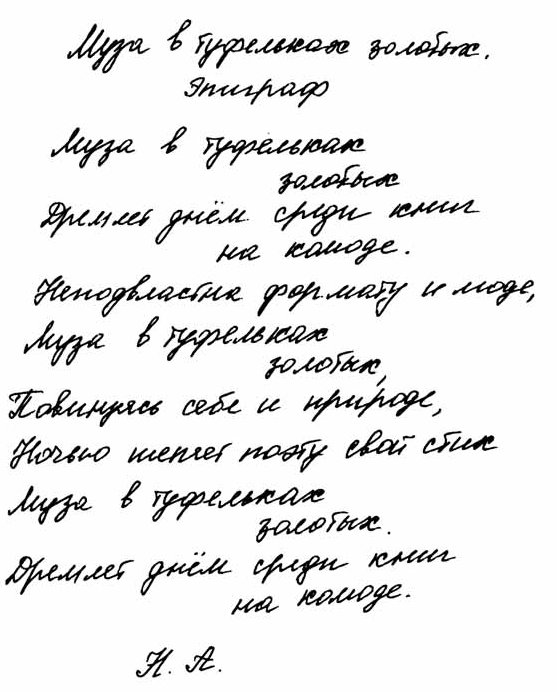 Муза в туфельках золотых.
Эпиграф
Муза в туфельках
золотых
Дремлет днём среди книг
на комоде.
Неподвластна формату и моде,
Муза в туфельках
золотых,
Повинуясь себе и природе,
Ночью шепчет поэту свой стих
Муза в туфельках
золотых.
Дремлет днём среди книг
на комоде.
Н. А.